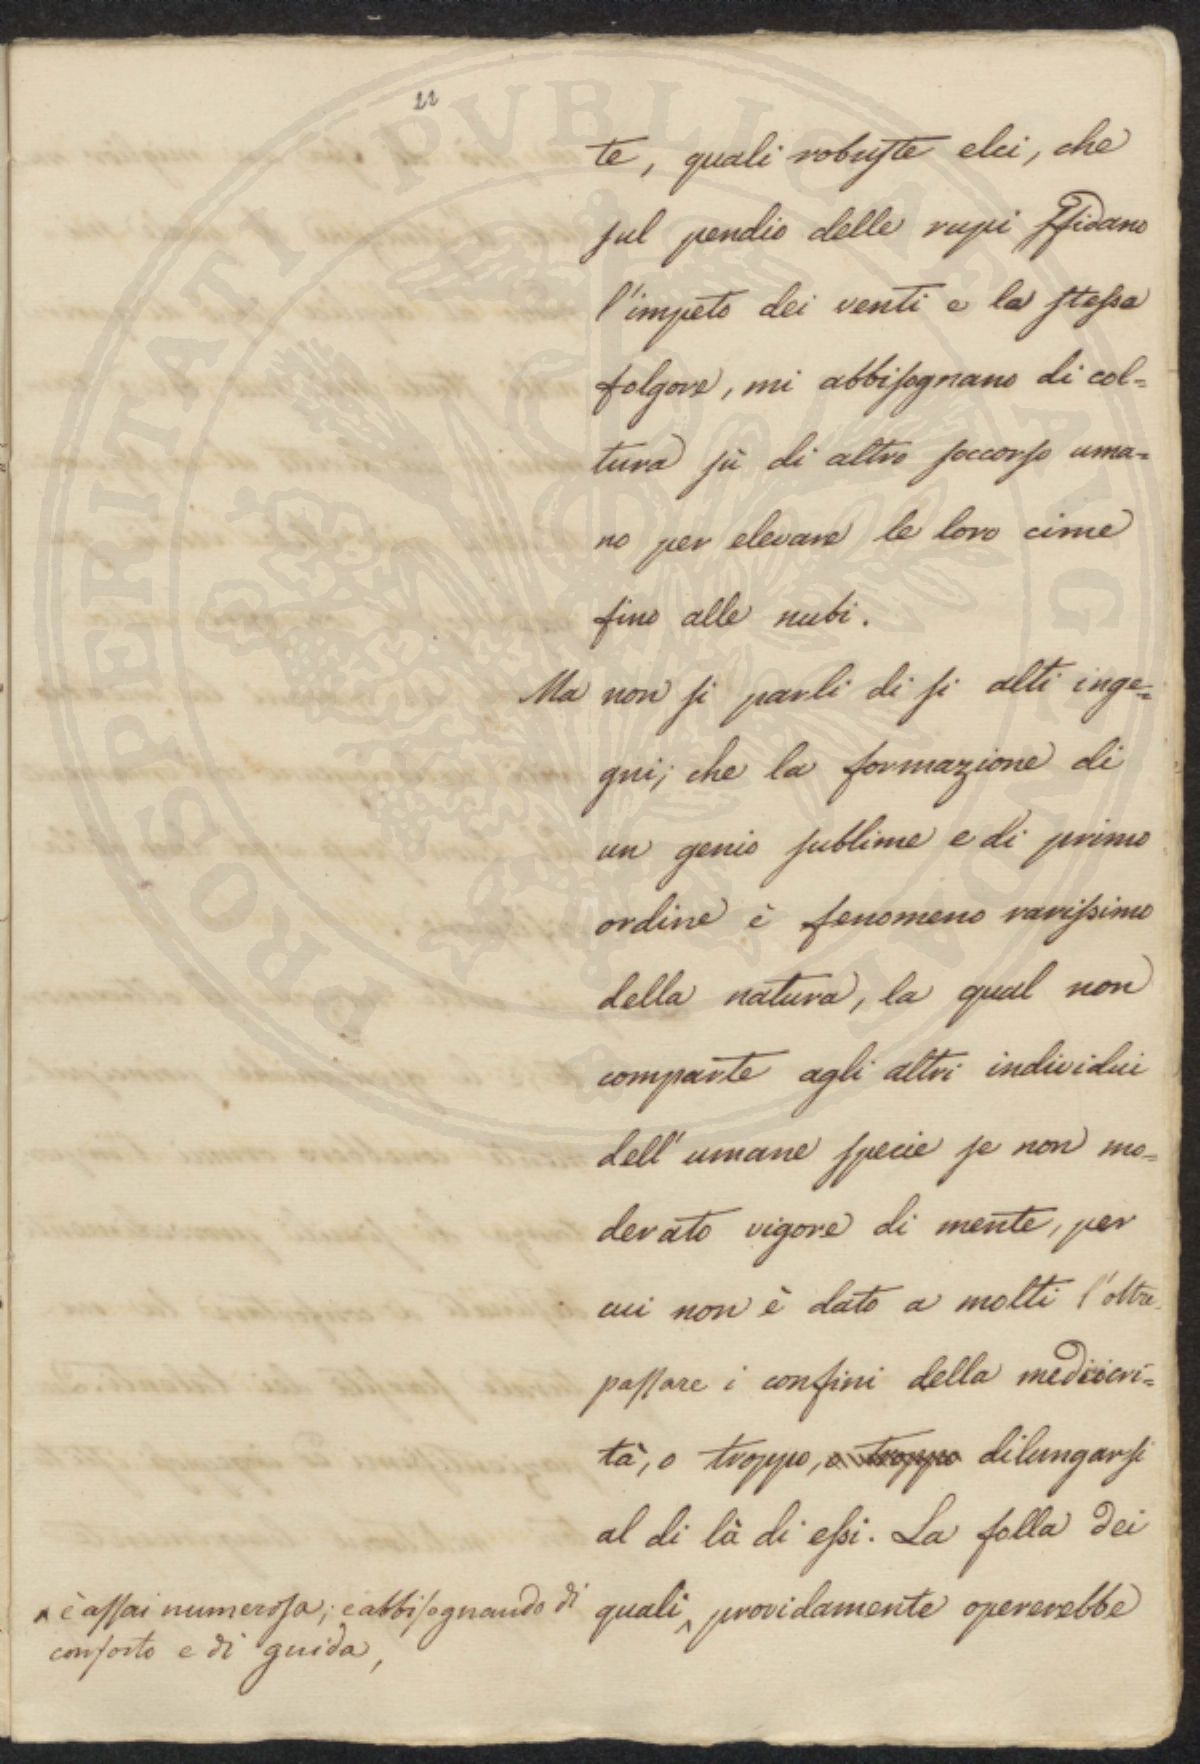 22
te, quali robuste elci, che
sul pendio delle rupi sfidano
l'impeto dei venti e la stessa
folgore, mi abbisognano di col=
tura sù di altro soccorso uma=
no per elevare le loro cime
fino alle nubi.
Ma non si parli di si alti inge=
gni; che la formazione di
un genio sublime e di primo
ordine è fenomeno rarissimo
della natura, la qual non
comparte agli altri individui
dell' umane specie se non mo=
derato vigore di mente, per
cui non è dato a molti l'oltre
passare i confini della mediocri=
tà, o troppo, o troppo dilungarsi
al di là di essi. La folla dei
quali ^ providamente opererebbe
^ è assai numerosa; e abbisognando di
conforto e di guida,
PROSPERITATI PVBLICAE AVGENDAE